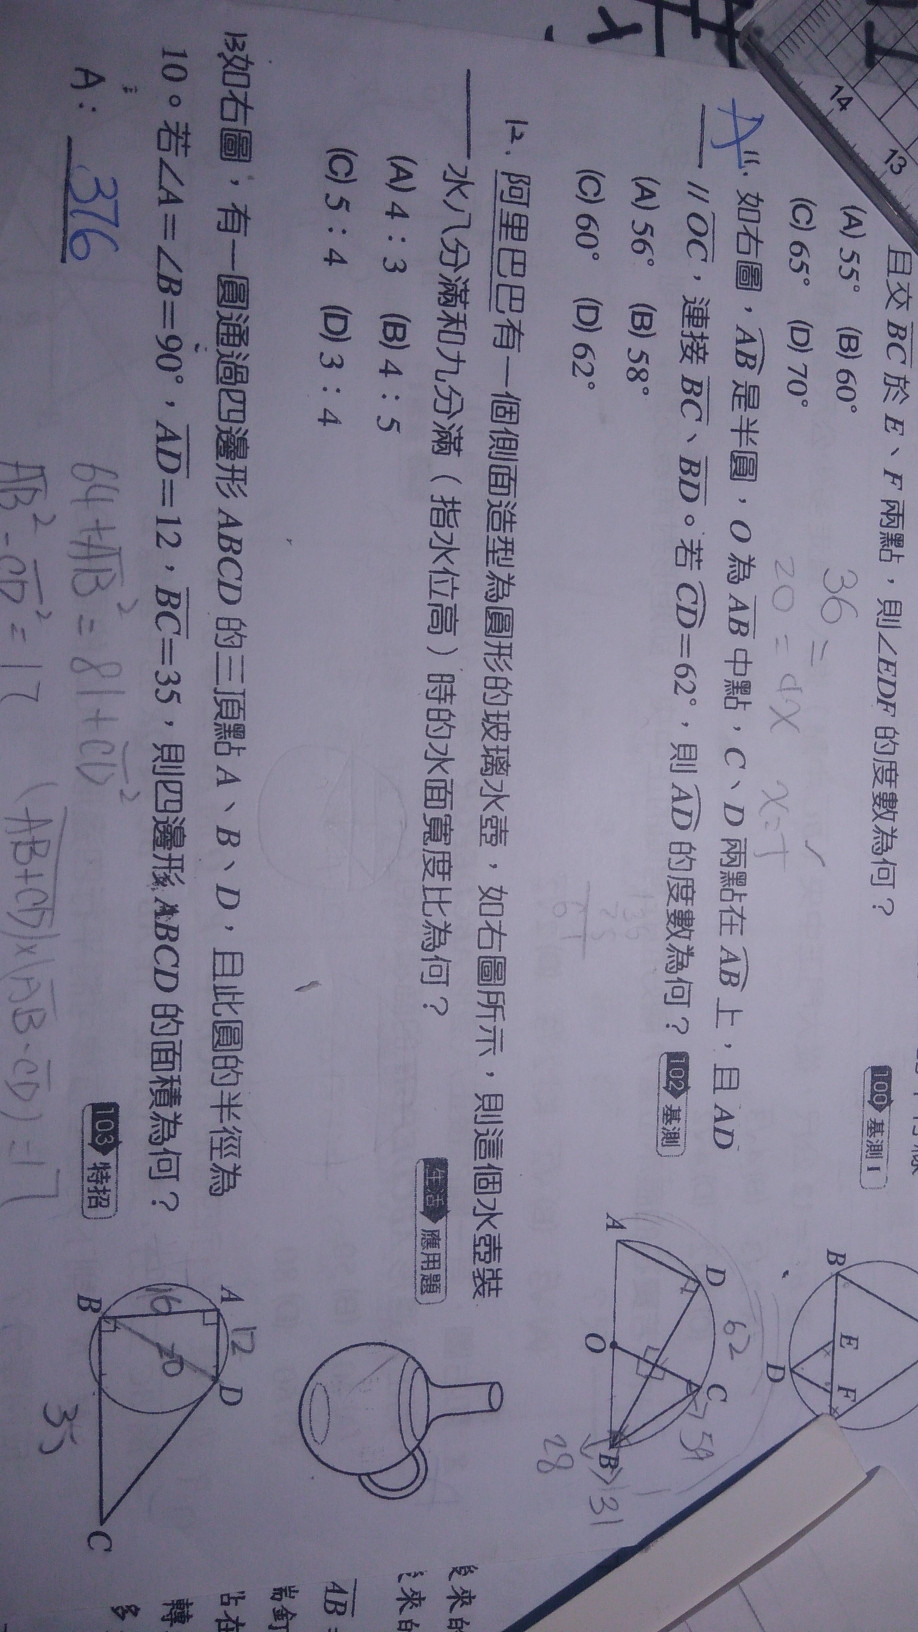 14
13
且交 BC 於 E、F 兩點，則∠EDF 的度數為何？
100 基測 I
(A) 55° (B) 60°
(C) 65° (D) 70°
36 =
20 = 4x
A 11. 如右圖，AB 是半圓，O 為 AB 中點，C、D 兩點在 AB 上，且 AD
// OC，連接 BC、BD。若 CD=62°，則 AD 的度數為何？ 102 基測
(A) 56° (B) 58°
(C) 60° (D) 62°
B
E
F
D
A
D
62
C
59
O
B
31
28
12. 阿里巴巴有一個側面造型為圓形的玻璃水壺，如右圖所示，則這個水壺裝
水八分滿和九分滿（指水位高）時的水面寬度比為何？ 生活 應用題
(A) 4：3 (B) 4：5
(C) 5：4 (D) 3：4
13. 如右圖，有一圓通過四邊形 ABCD 的三頂點 A、B、D，且此圓的半徑為
10。若∠A=∠B=90°，AD=12，BC=35，則四邊形 ABCD 的面積為何？
A：376
103 特招
A
12
D
16
20
B
35
C
64+AB²=81+CD²
AB²-CD²=17
(AB+CD)×(AB-CD)=17
AB=
轉
多